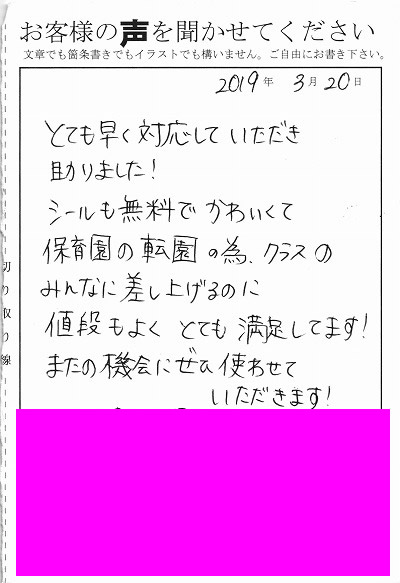 お客様の声を聞かせてください
文章でも箇条書きでもイラストでも構いません。ご自由にお書き下さい。
2019年 3月20日
とても早く対応していただき
助りました!
シールも無料でかわいくて
保育園の転園の為、クラスの
みんなに差し上げるのに
値段もよく とても満足してます!
またの機会にぜひ使わせて
いただきます!
切り取り線